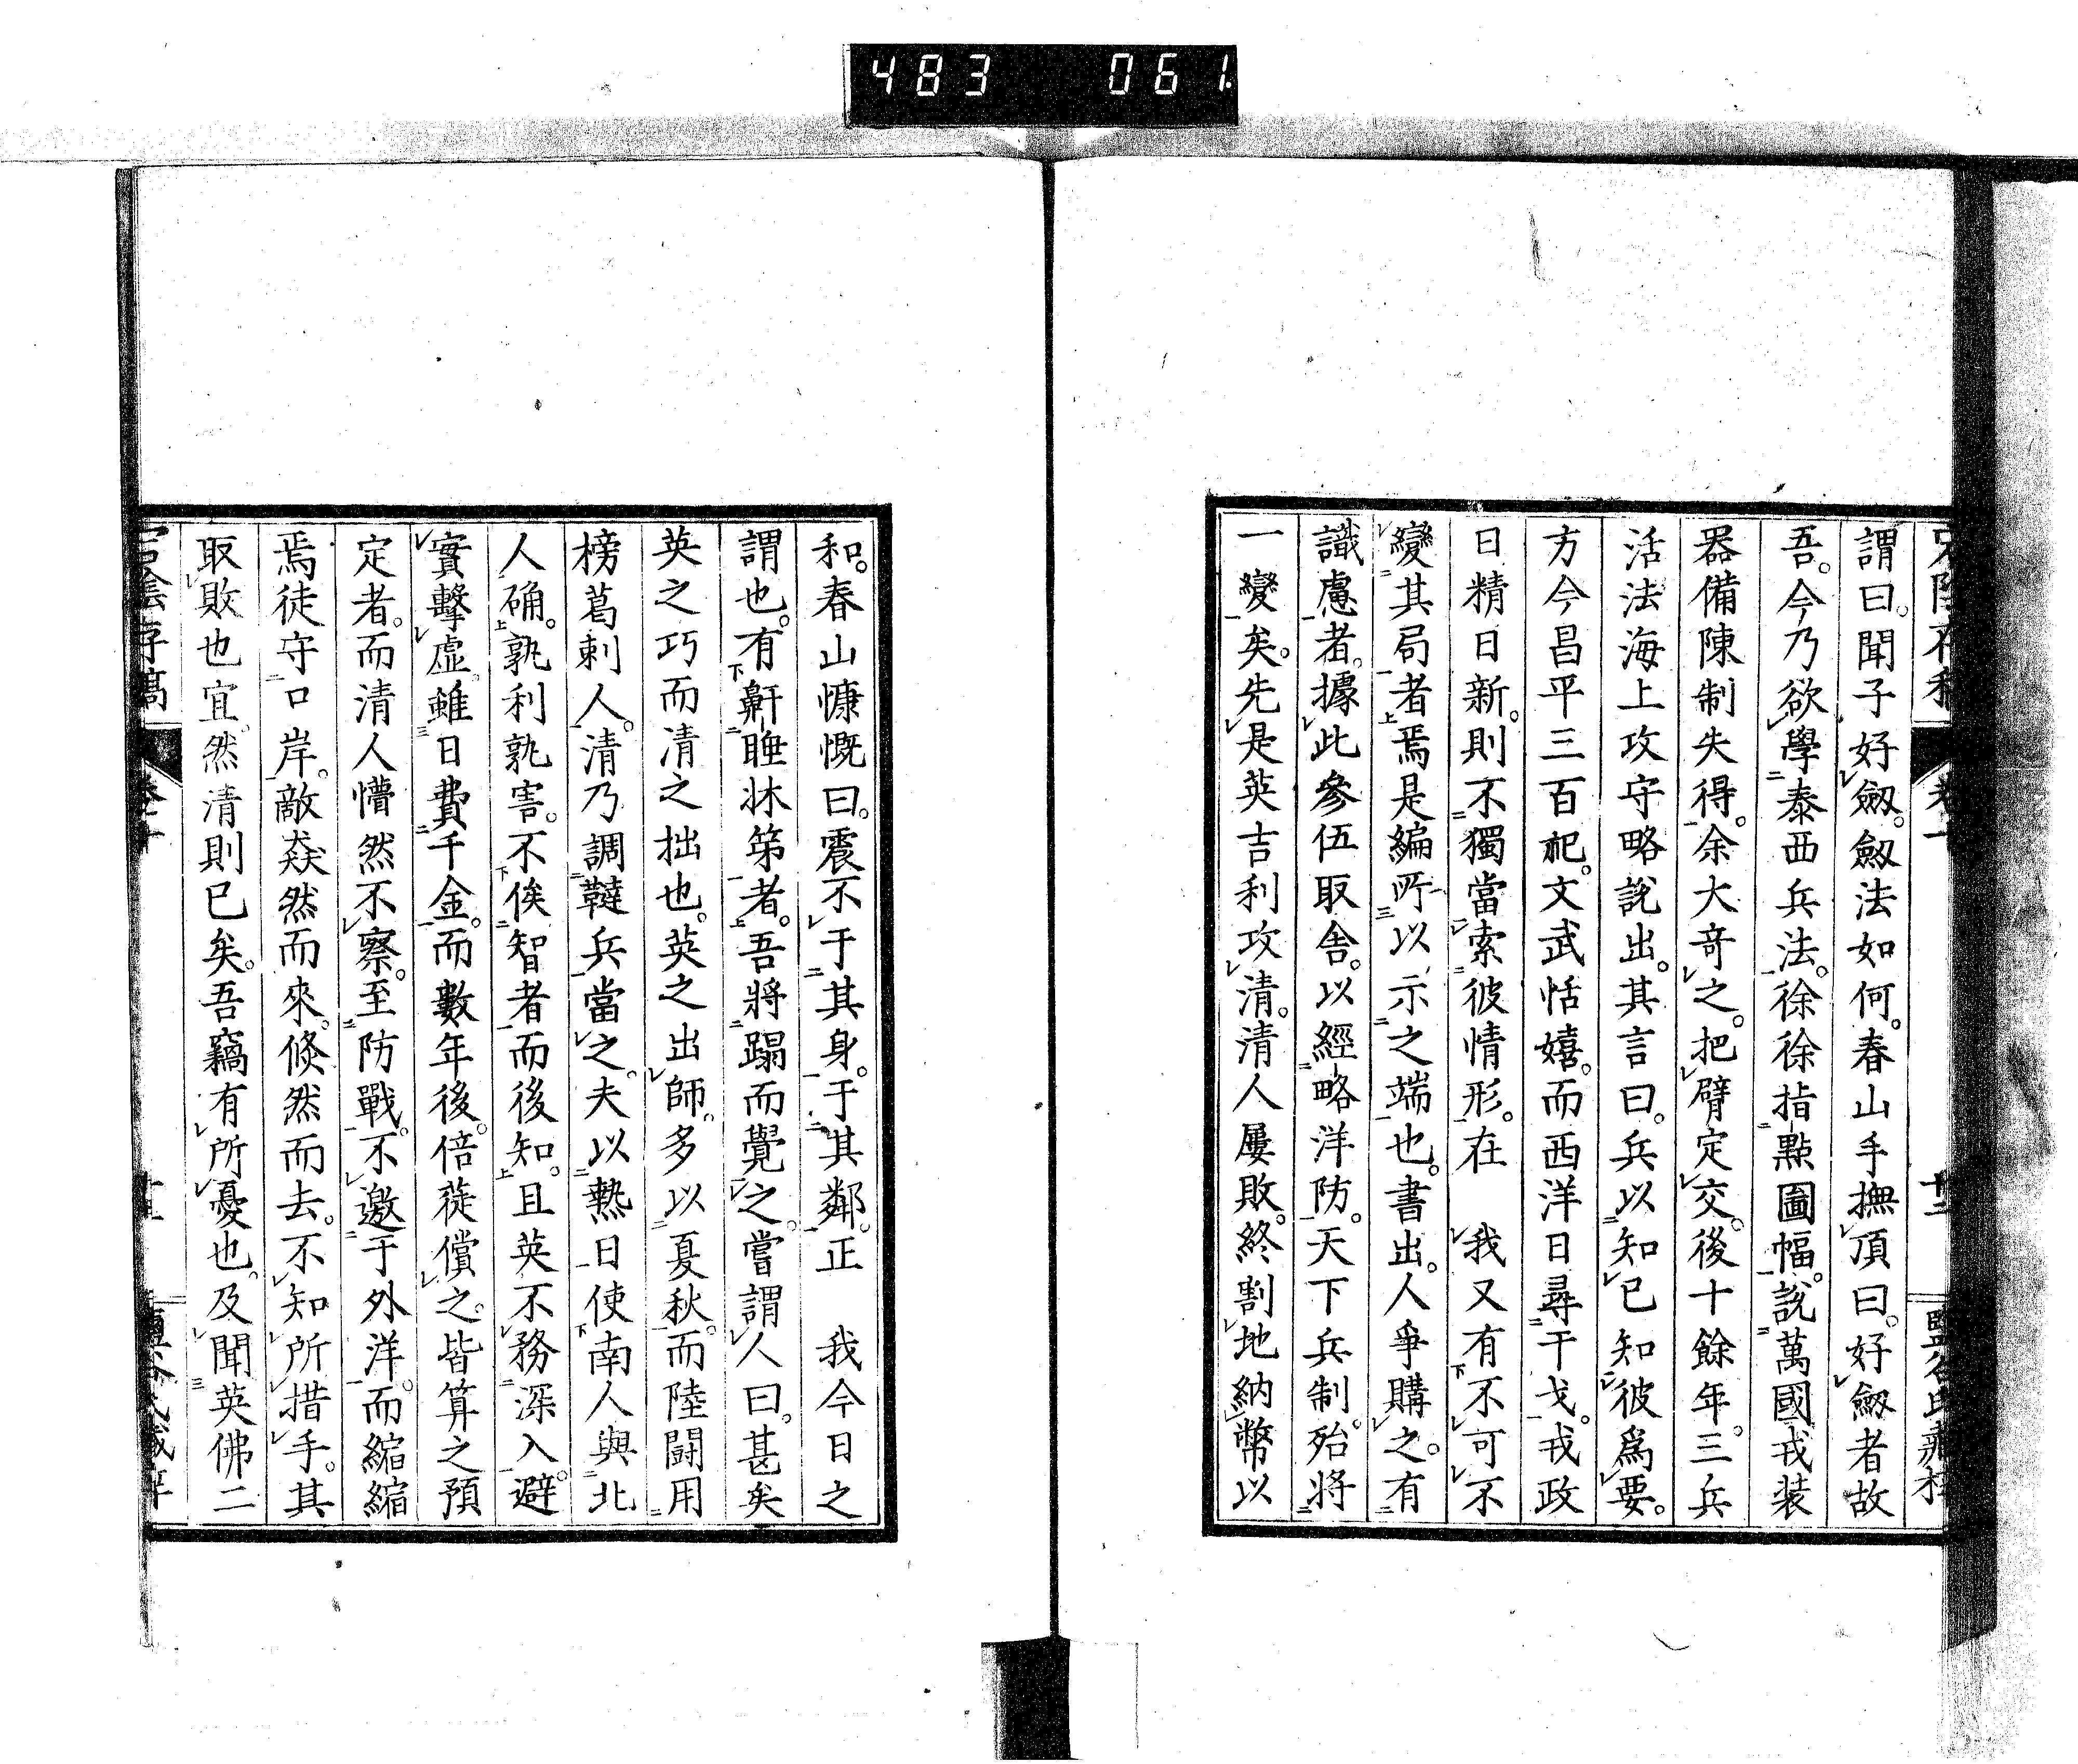 483 061
謂曰。聞子好劔。劔法如何。春山手撫頂曰。好劔者故
吾。今乃欲學泰西兵法。徐徐指點圖幅。説萬國戎装
器備陳制失得。余大竒之。把臂定交。後十餘年。三兵
活法海上攻守略説出。其言曰。兵以知已知彼爲要。
方今昌平三百祀。文武恬嬉。而西洋日尋干戈。戎政
日精日新。則不獨當索彼情形。在 我又有不可不
變其局者焉。是編所以示之端也。書出。人爭購之。有
識慮者。據此參伍取舎。以經略洋防。天下兵制。殆將
一變矣。先是英吉利攻清。清人屢敗。終割地納幣以
和。春山慷慨曰。震不于其身。于其鄰。正 我今日之
謂也。有鼾睡牀笫者。吾將蹋而覺之。嘗謂人曰。甚矣
英之巧而清之拙也。英之出師。多以夏秋。而陸闘用
榜葛剌人。清乃調韃兵當之。夫以熱日使南人與北
人确。孰利孰害。不俟智者而後知。且英不務深入。避
實擊虚。雖日費千金。而數年後。倍蓰償之。皆算之預
定者。而清人懵然不察。至防戰。不邀于外洋。而縮縮
焉徒守口岸。敵猋然而來。倐然而去。不知所措手。其
取敗也宜。然清則已矣。吾竊有所憂也。及聞英佛二
宕陰存稿 卷十